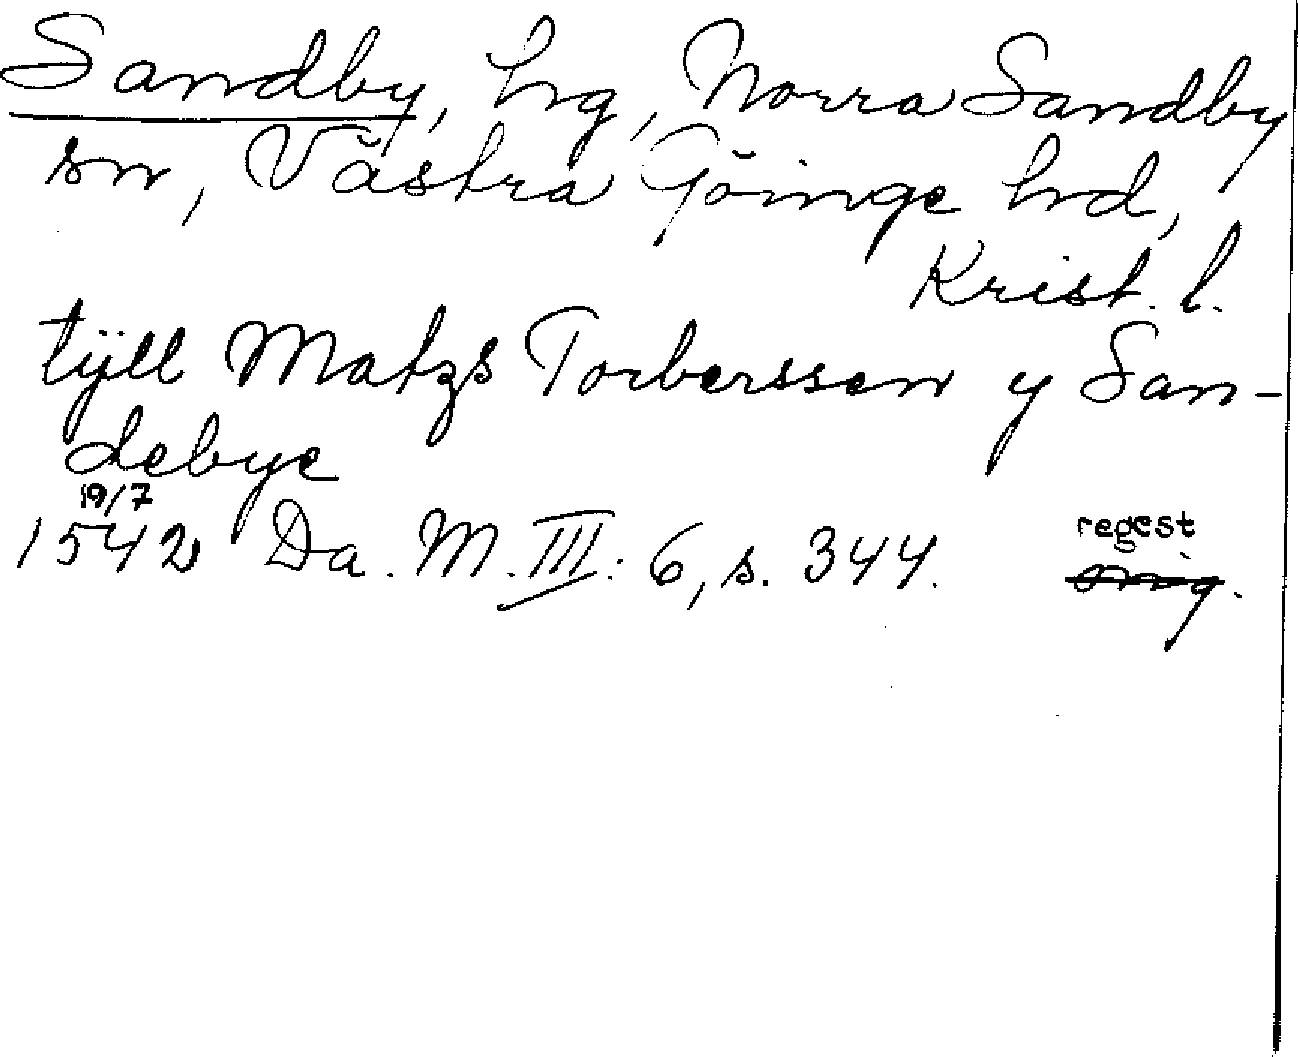 Sandby, hrg, Norra Sandby
sn, Västra Göinge hrd,
Krist. l.
tÿll Matzs Torberssen y San-
debye
19/7
1542 Da. M. III: 6, s. 344.
regest